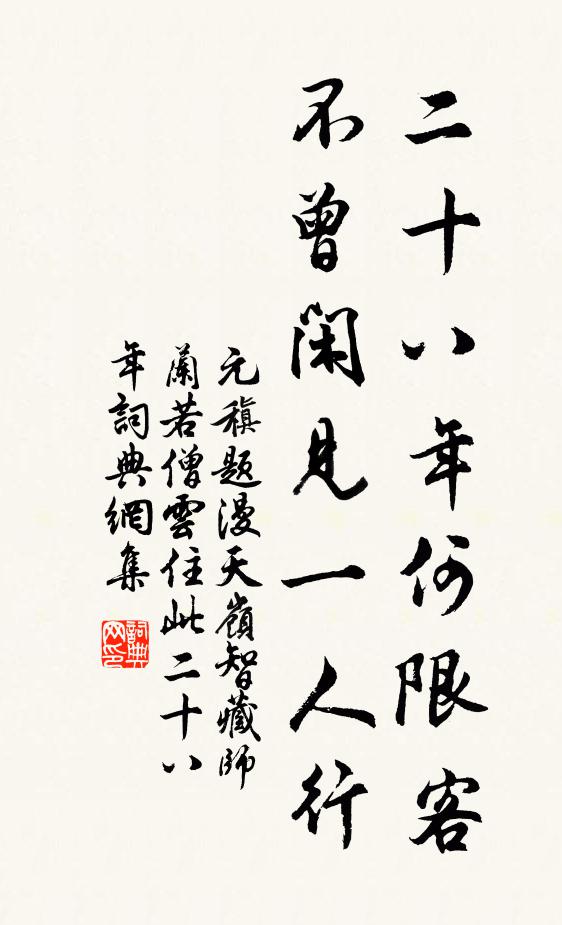 二十八年何限客
不曾閑見一人行
元稹題漫天嶺智藏師
蘭若僧雲住此二十八
年詞典網集
詞典
网印